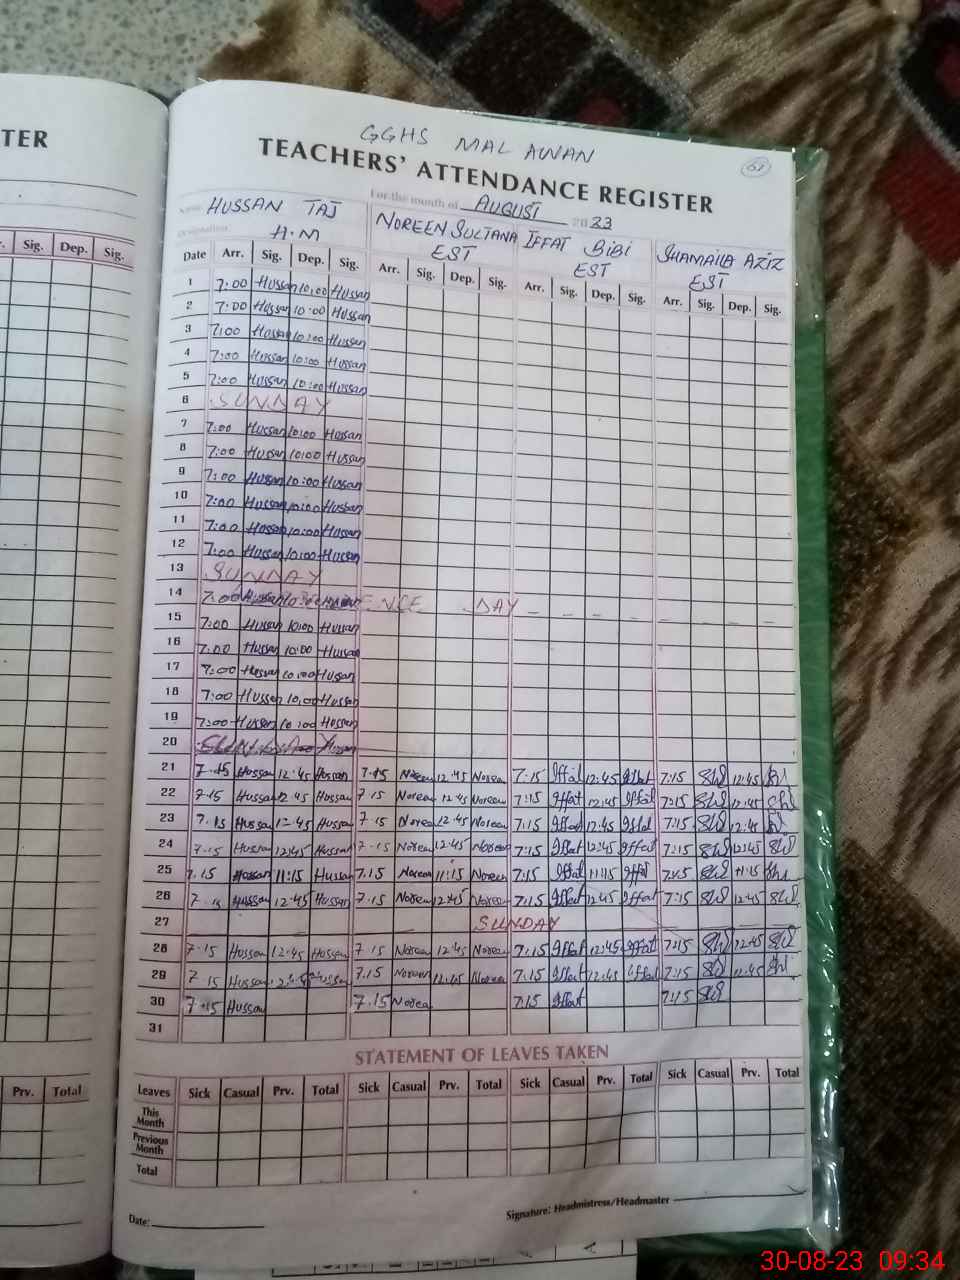 TER
GGHS MAL AWAN
TEACHERS' ATTENDANCE REGISTER
61
For the month of AUGUST 2023
Name HUSSAN TAJ NOREEN SULTANA IFFAT BIBI SHAMAILA AZIZ
Designation H.M EST EST EST
Sig. Dep. Sig.
Date Arr. Sig. Dep. Sig. Arr. Sig. Dep. Sig. Arr. Sig. Dep. Sig. Arr. Sig. Dep. Sig.
1 7:00 Hussan 10:00 Hussan
2 7:00 Hussan 10:00 Hussan
3 7:00 Hussan 10:00 Hussan
4 7:00 Hussan 10:00 Hussan
5 7:00 Hussan 10:00 Hussan
6 SUNDAY
7 7:00 Hussan 10:00 Hussan
8 7:00 Hussan 10:00 Hussan
9 7:00 Hussan 10:00 Hussan
10 7:00 Hussan 10:00 Hussan
11 7:00 Hussan 10:00 Hussan
12 7:00 Hussan 10:00 Hussan
13 SUNDAY
14 7:00 DAY
15 7:00 Hussan 10:00 Hussan
16 7:00 Hussan 10:00 Hussan
17 7:00 Hussan 10:00 Hussan
18 7:00 Hussan 10:00 Hussan
19 7:00 Hussan 10:00 Hussan
20 Hussan
21 7.15 Hussan 12:45 Hussan 7.15 Noreen 12:45 Noreen 7:15 Iffat 12:45 Iffat 7:15 12:45
22 7.15 Hussan 12:45 Hussan 7.15 Noreen 12:45 Noreen 7:15 Iffat 12:45 Iffat 7:15 12:45
23 7.15 Hussan 12:45 Hussan 7.15 Noreen 12:45 Noreen 7:15 Iffat 12:45 Iffat 7:15 12:45
24 7.15 Hussan 12:45 Hussan 7.15 Noreen 12:45 Noreen 7:15 Iffat 12:45 Iffat 7:15 12:45
25 7.15 Hussan 11:15 Hussan 7.15 Noreen 11:15 Noreen 7:15 Iffat 11:15 Iffat 7:15 11:15
26 7.15 Hussan 12:45 Hussan 7.15 Noreen 12:45 Noreen 7:15 Iffat 12:45 Iffat 7:15 12:45
27 SUNDAY
28 7.15 Hussan 12:45 Hussan 7.15 Noreen 12:45 Noreen 7.15 Iffat 12:45 Iffat 7:15 12:45
29 7.15 Hussan Hussan 7.15 Noreen 12:45 Noreen 7.15 Iffat 12:45 Iffat 7:15 12:45
30 7.15 Hussan 7.15 Noreen 7:15 Iffat 7:15
31
STATEMENT OF LEAVES TAKEN
Prv. Total
Leaves Sick Casual Prv. Total Sick Casual Prv. Total Sick Casual Prv. Total Sick Casual Prv. Total
This Month
Previous Month
Total
Date:
Signature: Headmistress/Headmaster
30-08-23 09:34